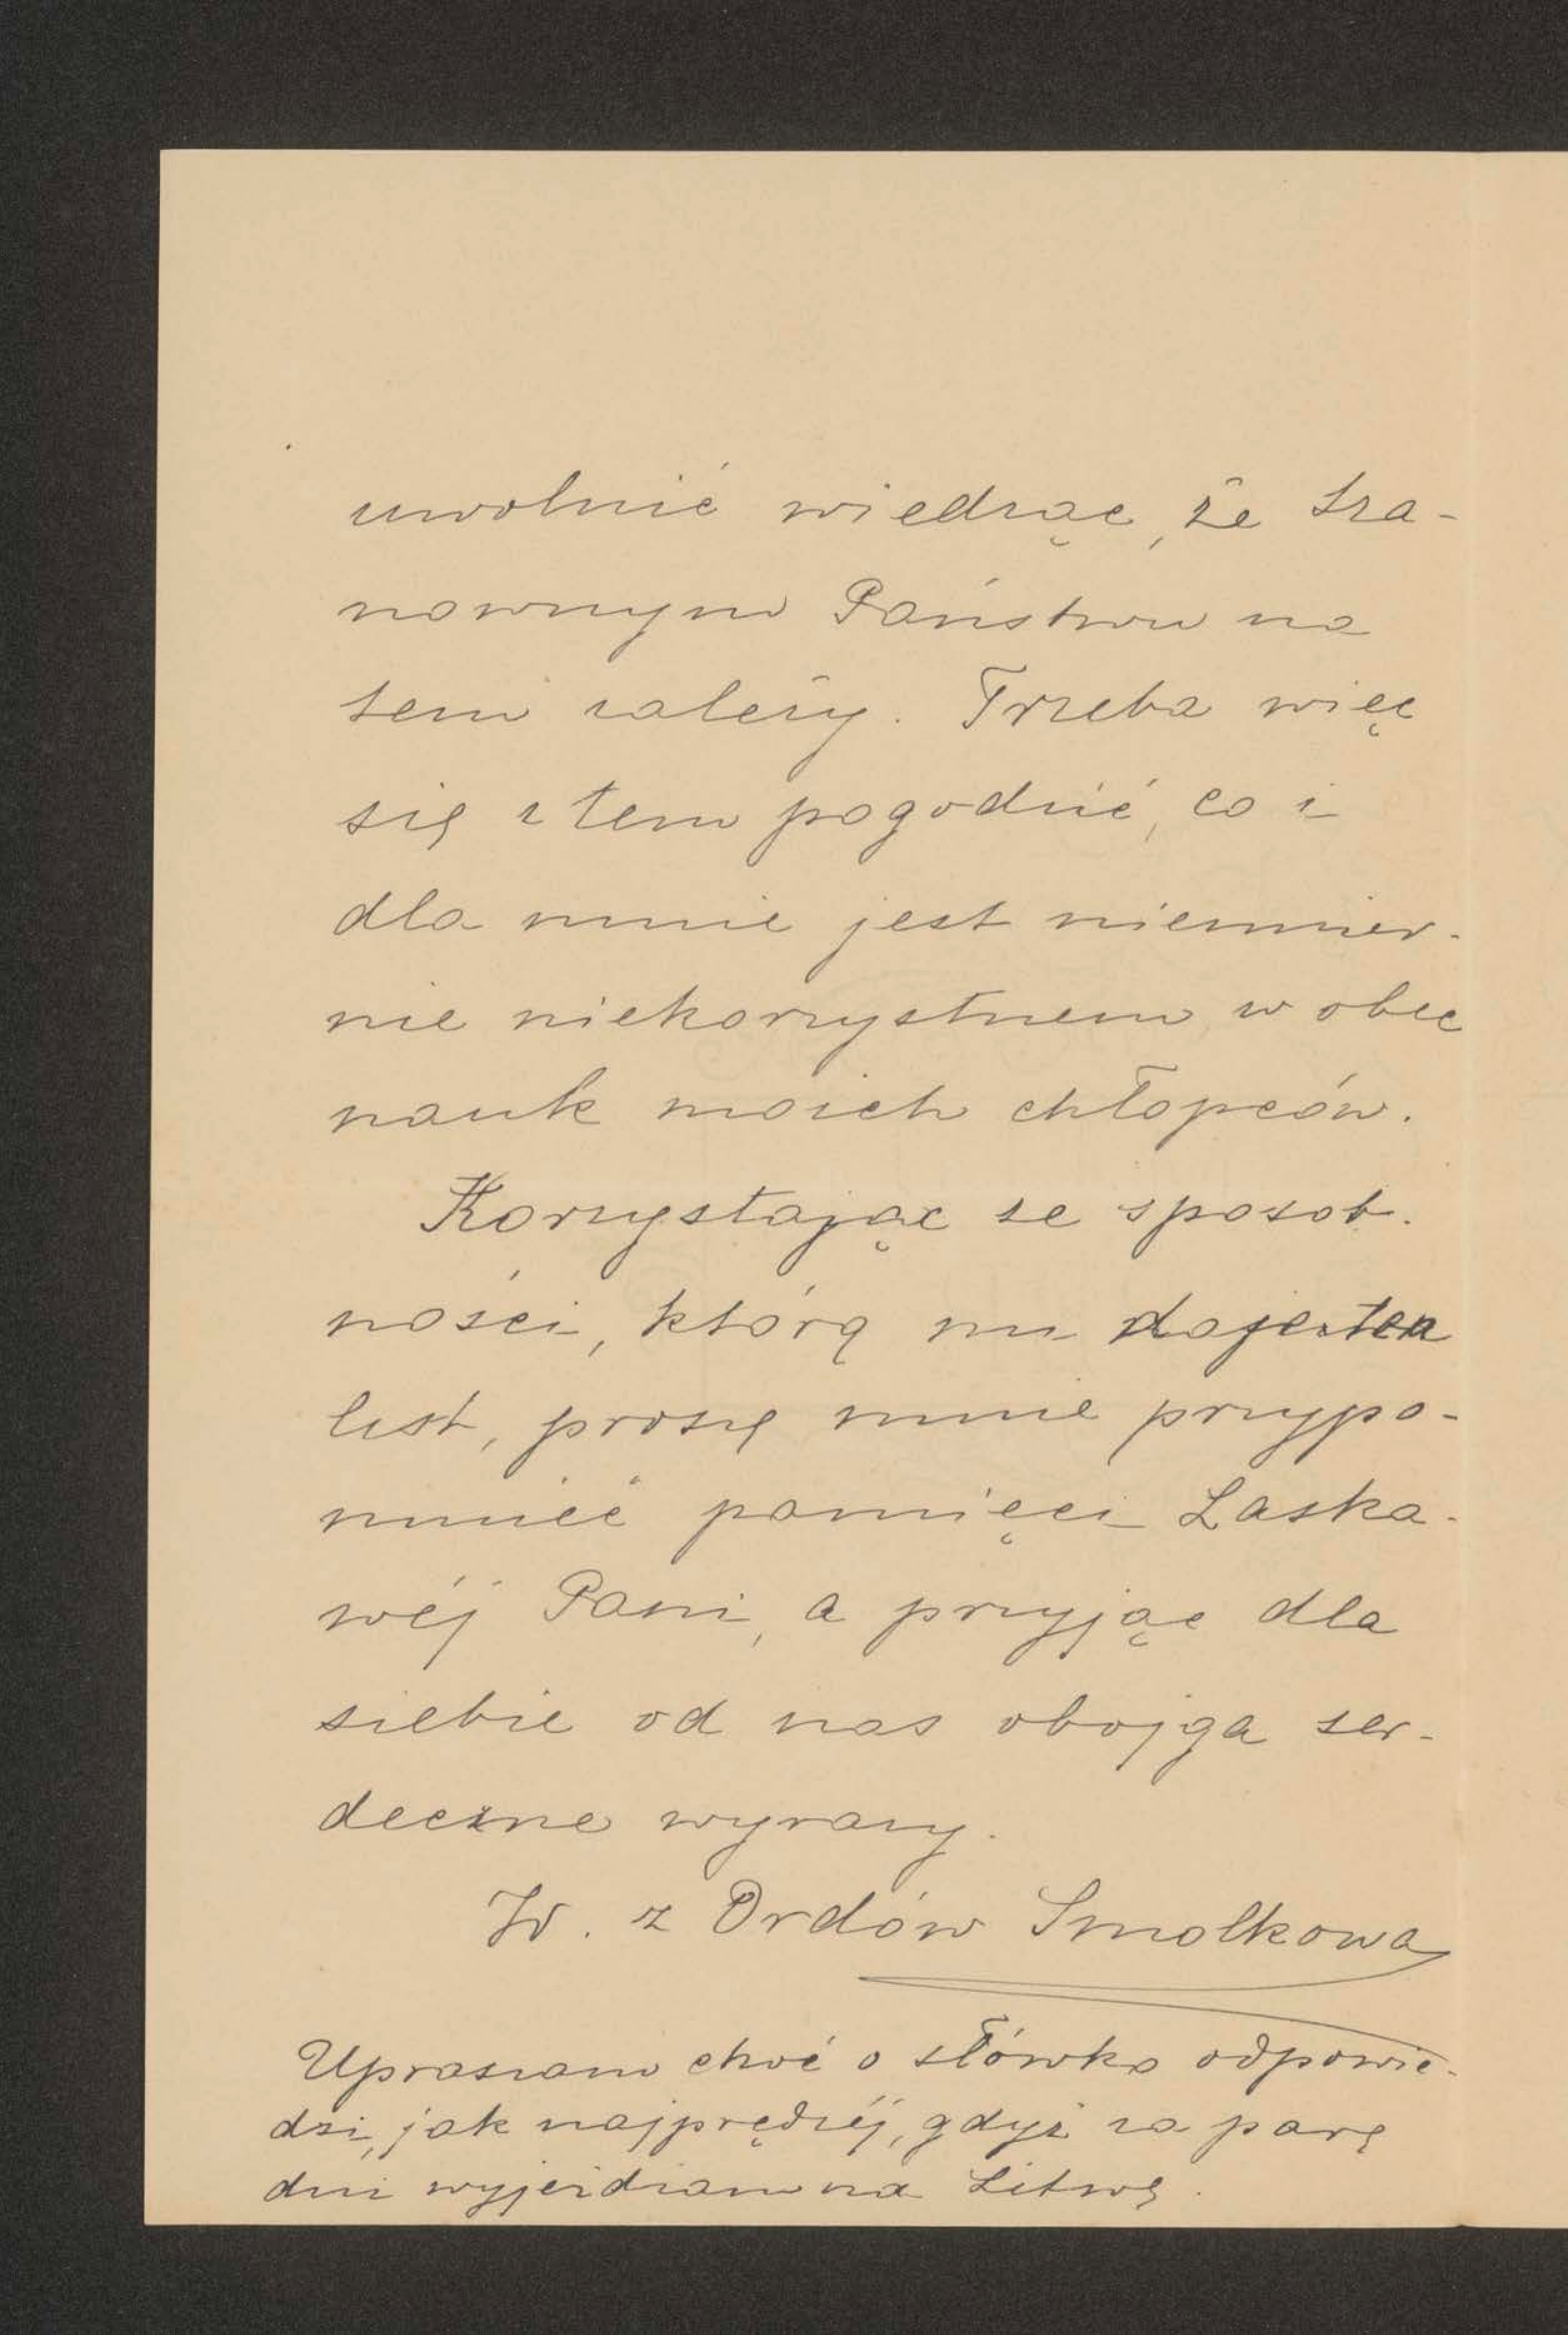 uwolnić wiedząc, że Sza-
nownym Państwu na
tem zależy. Trzeba więc
się z tem pogodzić, co i
dla mnie jest niezmier-
nie niekorzystnem w obec
nauk moich chłopców.
Korzystając ze sposob-
ności, którą mi daje ten
list, proszę mnie przypo-
mnieć pamięci Łaska-
wéj Pani, a przyjąć dla
siebie od nas obojga ser-
deczne wyrazy.
W. z Ordów Smolkowa
Upraszam choć o słówko odpowie-
dzi, jak najprędzéj, gdyż za parę
dni wyjeżdżam na Litwę.